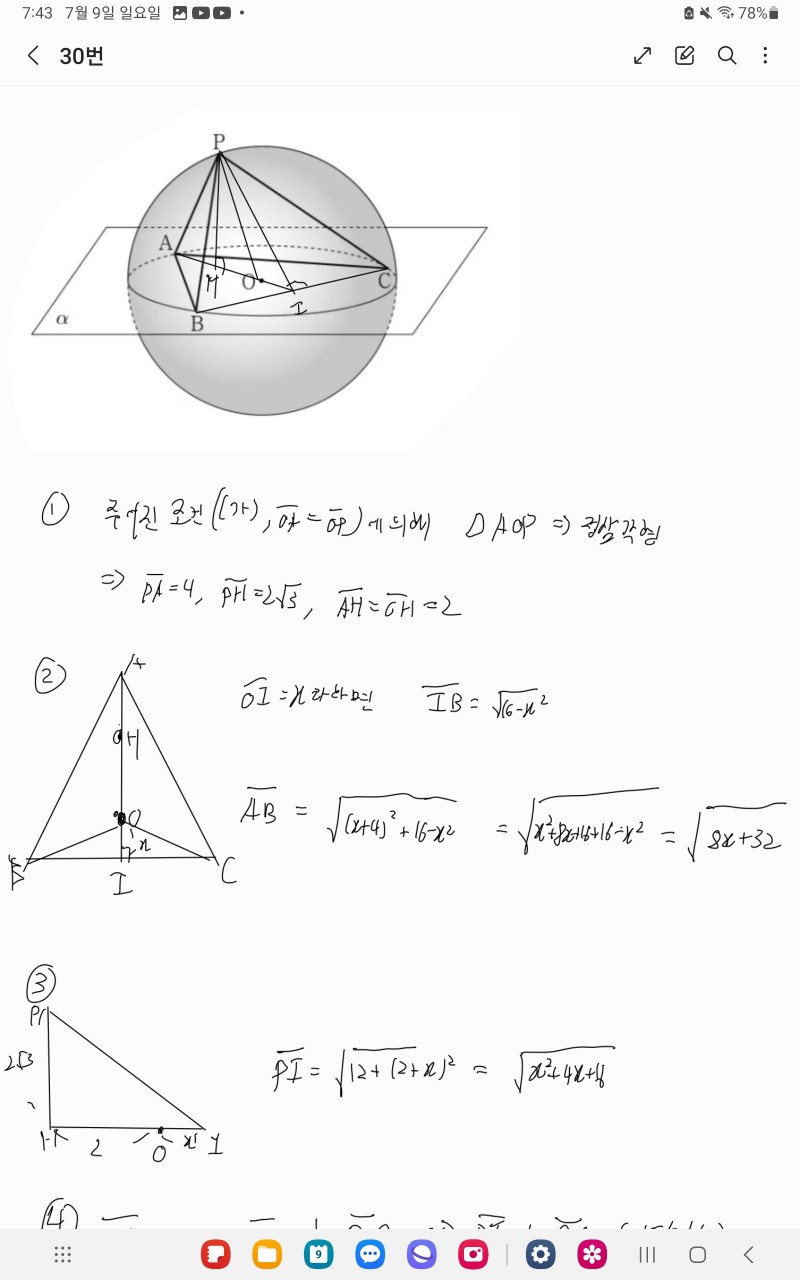 7:43 7월 9일 일요일 78%
30번
P
A
H
O
C
I
B
α
① 주어진 조건((가), OA = OP)에 의해 △AOP ⇒ 정삼각형
⇒ PA = 4, PH = 2√3, AH = OH = 2
②
A
H
O
x
B
I
C
OI = x라 하면 IB = √16-x²
AB = √(x+4)² + 16-x² = √x²+8x+16+16-x² = √8x+32
③
P
2√3
H
2
O
x
I
PI = √12+(2+x)² = √x²+4x+16
④
9